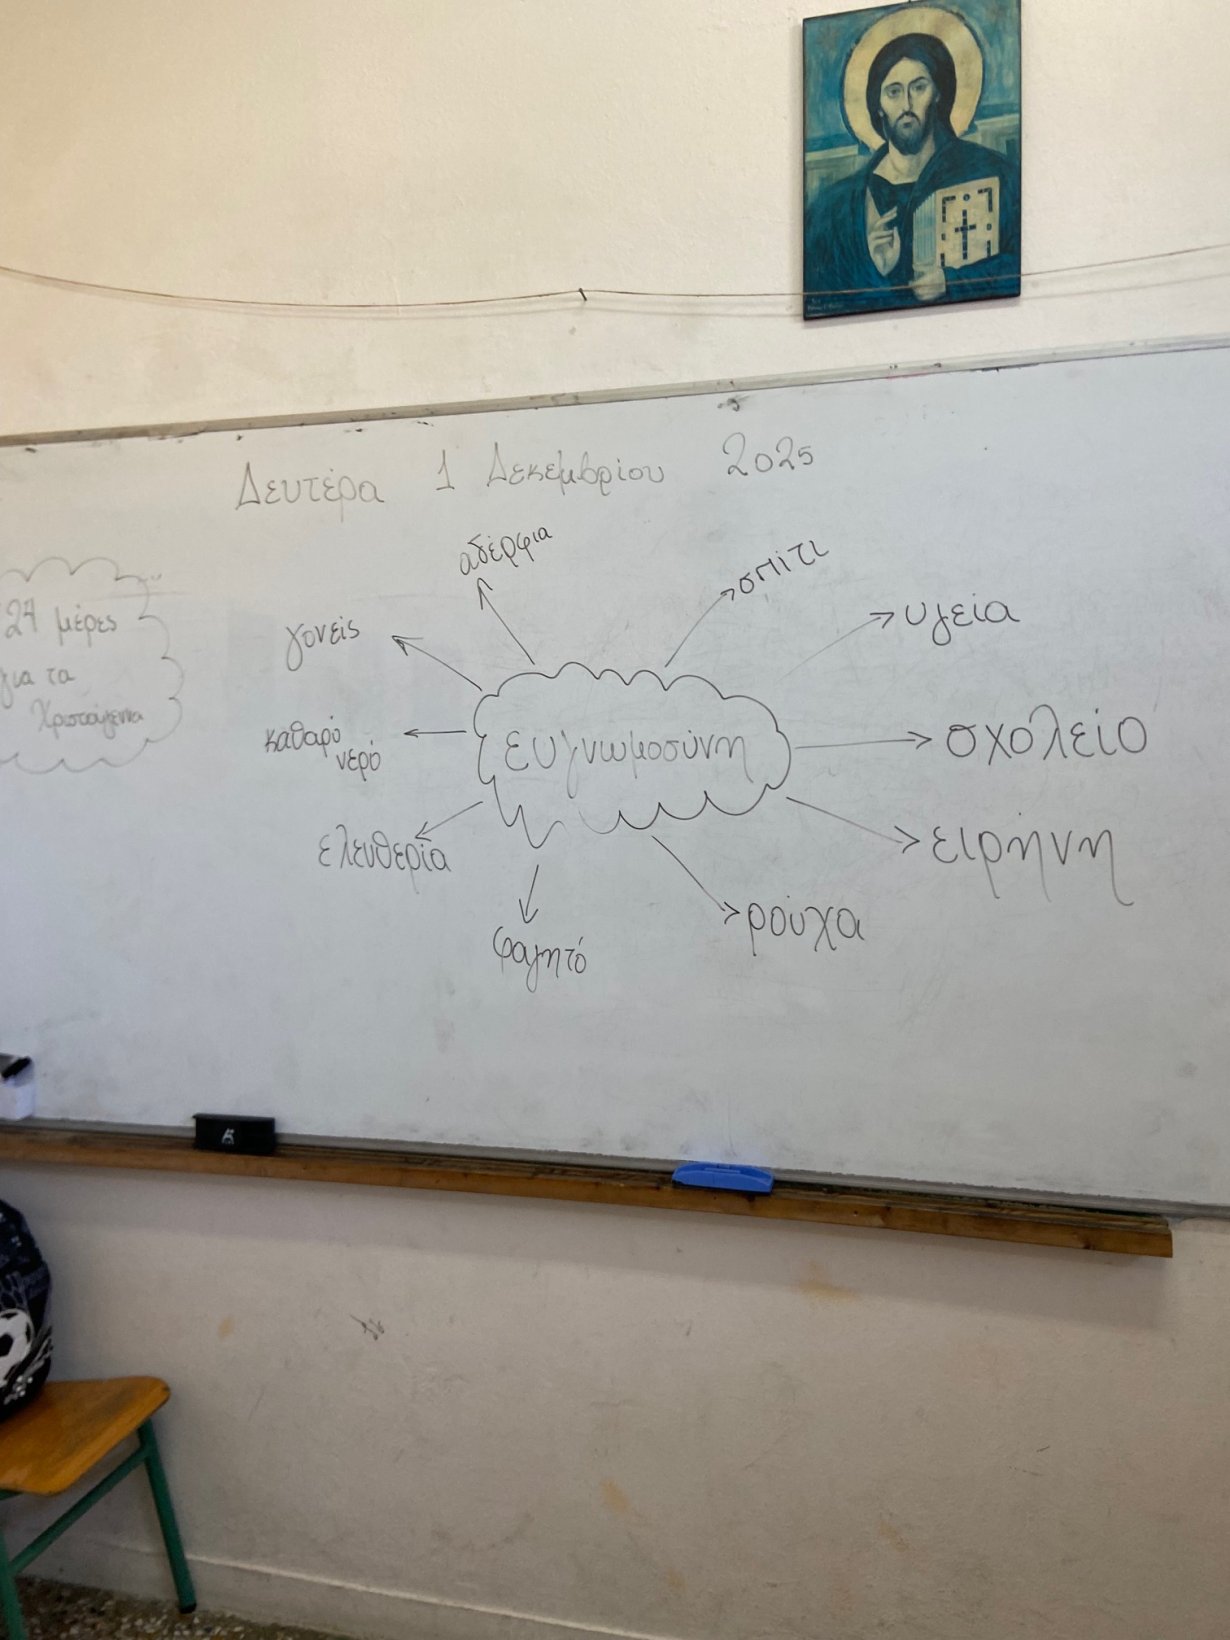 Δευτέρα 1 Δεκεμβρίου 2025
24 μέρες
για τα
Χριστούγεννα
ευγνωμοσύνη
αδέρφια
σπίτι
υγεία
σχολείο
ειρήνη
ρούχα
φαγητό
ελευθερία
καθαρό
νερό
γονείς